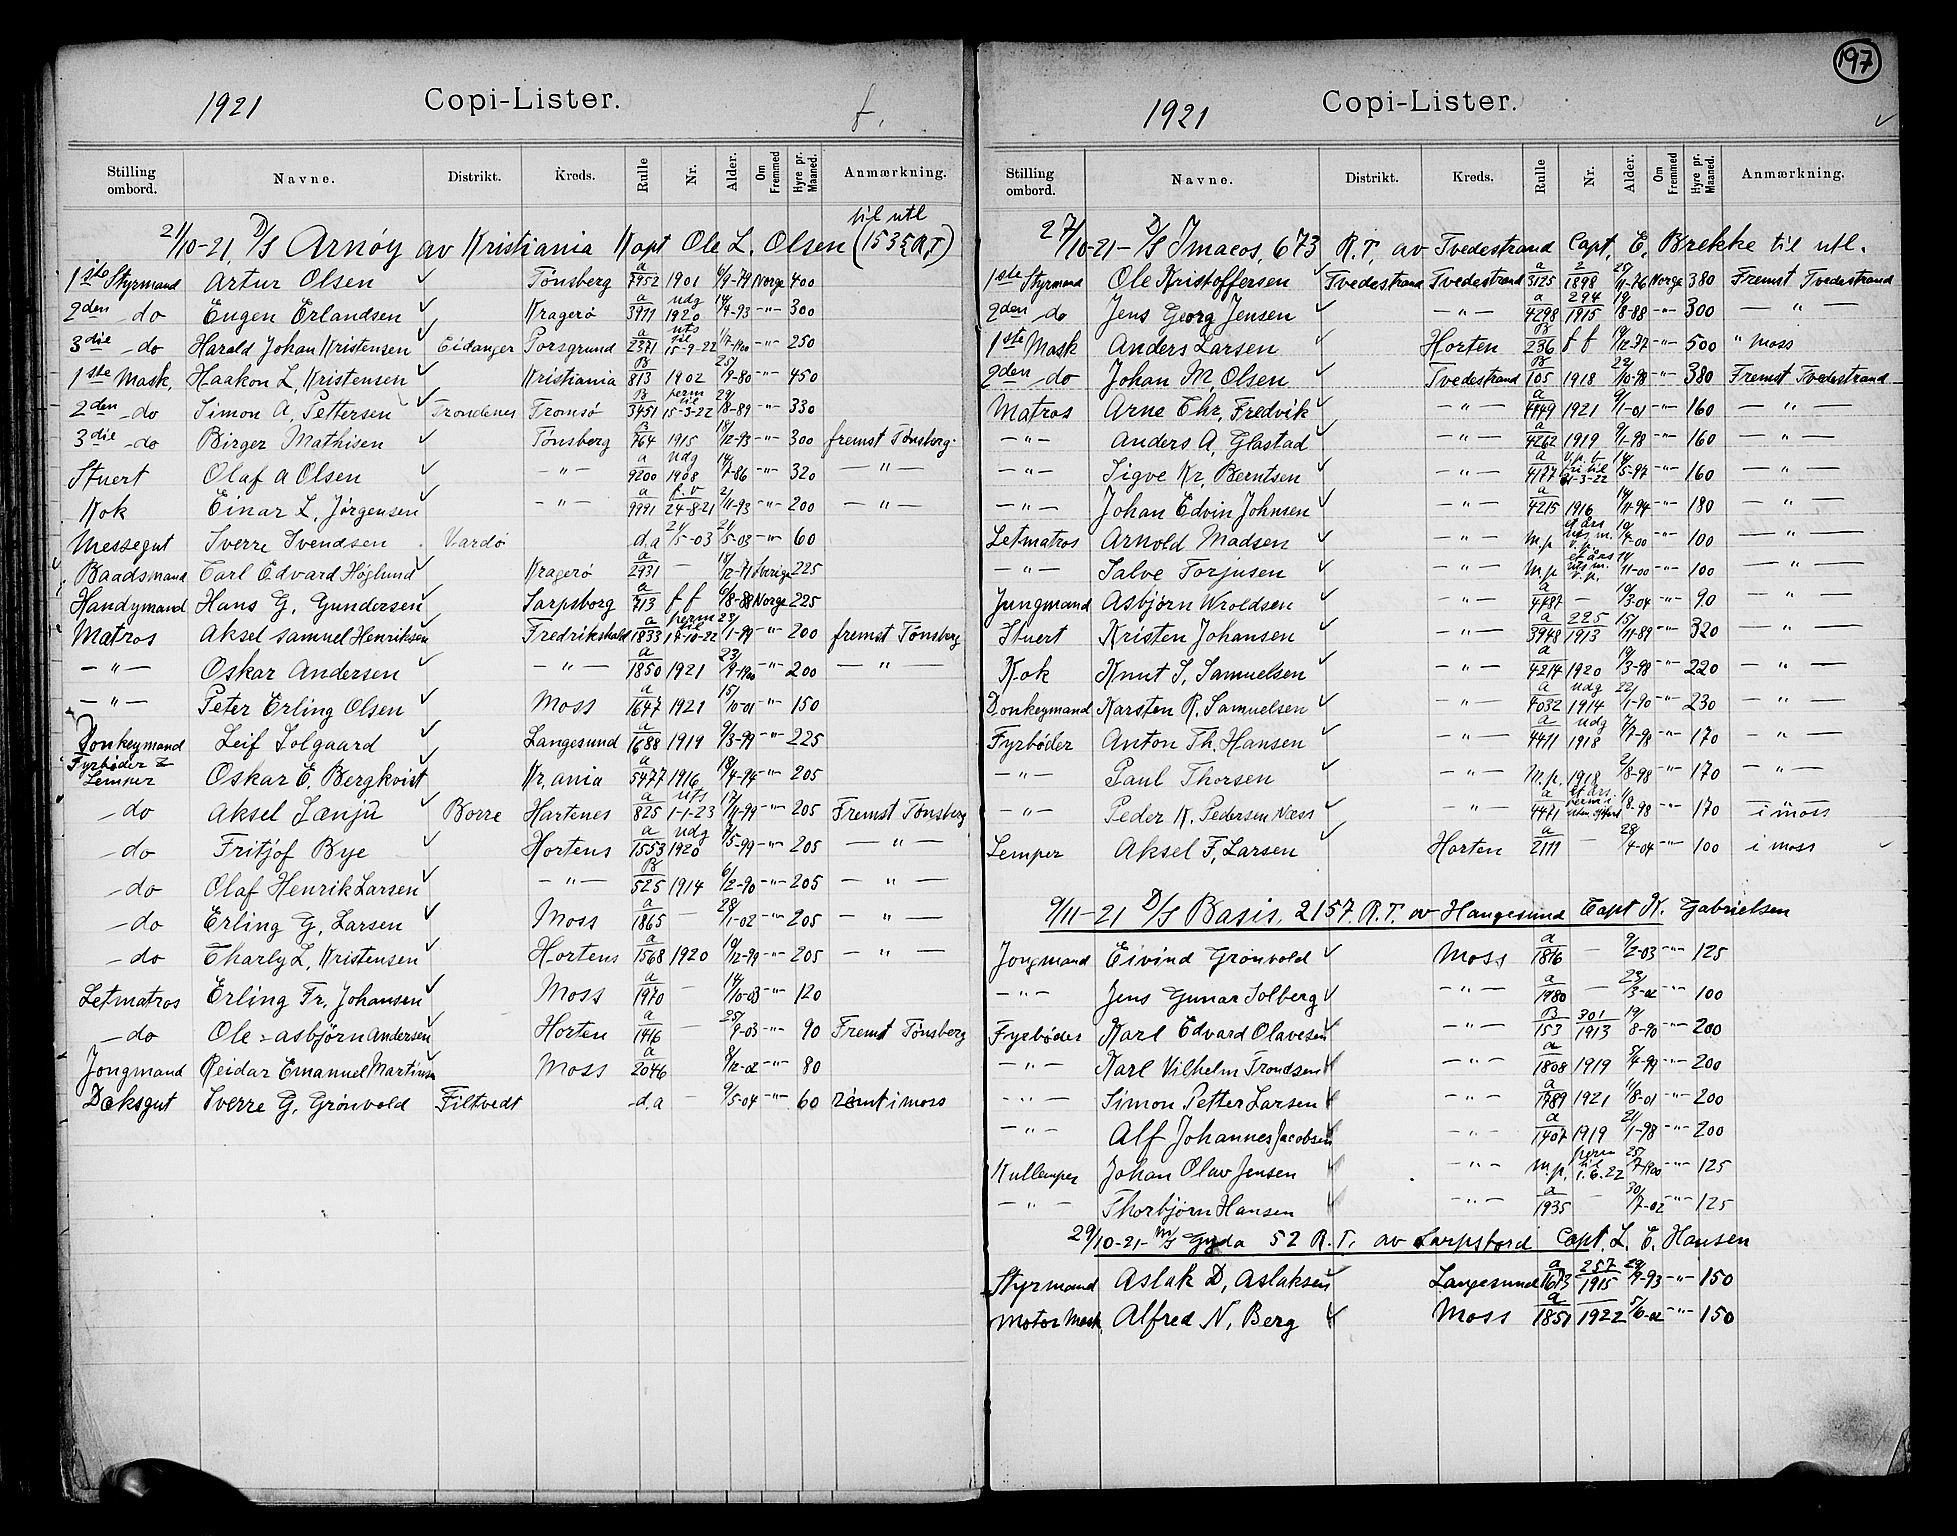 1921 Copi-Lister. f.
Stilling ombord. Navne. Distrikt. Kreds. Rulle Nr. Alder. Om Fremmed Hyre pr. Maaned. Anmærkning.
til utl
21/10-21, D/S Arnøy av Kristiania Kapt Ole L. Olsen (1535 R.T)
1ste Styrmand Artur Olsen Tønsberg a/7952 1901 6/9-79 Norge 400
2den do Eugen Erlandsen Kragerö a/3911 udg 1920 14/9-93 -"- 300
3die do Harald Johan Kristensen Eidanger Porsgrund a/2371 uts til 15-9-22 1/7-1900 -"- 250
1ste Mask. Haakon L. Kristensen Kristiania B/813 1902 25/9-80 -"- 450
2den do Simon A. Pettersen Trondenes Tromsö B/3451 perm til 15-3-22 29/8-89 -"- 330
3die do Birger Mathisen Tönsberg B/764 1915 18/12-93 -"- 300 fremst Tönsberg.
Stuert Olaf A Olsen -"- a/9200 udg 1908 14/7-86 -"- 320 -"-
Kok Einar L. Jørgensen -"- a/9991 f.v 24-8-21 2/11-93 -"- 200 -"-
Messegut Sverre Svendsen Vardö d.a 21/5-03 21/5-03 -"- 60
Baadsmand Carl Edvard Höglund Kragerö a/2931 - 18/12-71 Sverige 225
Handymand Hans G. Gundersen Sarpsborg a/713 f f 6/8-88 Norge 225
Matros Aksel Samuel Henriksen Fredrikshald a/1833 perm til 19-10-22 23/1-99 -"- 200 fremst Tönsberg
-"- Oskar Andersen -"- a/1850 1921 23/9-1900 -"- 200 -"-
-"- Peter Erling Olsen Moss a/1647 1921 15/10-01 -"- 150
Donkeymand Leif Solgaard Langesund a/1688 1919 9/3-99 -"- 225
Fyrböder & Lemper Oskar E. Bergkvist Kr.ania a/5477 1916 18/4-94 -"- 205
do Aksel Sanju Borre Hortenes a/825 uts 1-1-23 17/11-99 -"- 205 Fremst Tönsberg
do Fritjof Bye Hortens a/1553 udg 1920 7/5-99 -"- 205 -"-
do Olaf Henrik Larsen -"- B/525 1914 6/2-90 -"- 205 -"-
do Erling G. Larsen Moss a/1865 - 28/1-02 -"- 205 -"-
do Charly L. Kristensen Hortens a/1568 1920 19/12-99 -"- 205 -"-
Letmatros Erling Fr. Johansen Moss a/1970 - 14/10-03 -"- 120
do Ole = Asbjörn Andersen Horten a/1416 - 25/9-03 -"- 90 Fremst Tönsberg
Jongmand Reidar Emanuel Martinsen Moss a/2046 8/12-02 -"- 80
Deksgut Sverre G. Grönvold Filtvedt d.a - 9/5-04 -"- 60 i moss
197
1921 Copi-Lister.
Stilling ombord. Navne. Distrikt. Kreds. Rulle Nr. Alder. Om Fremmed Hyre pr. Maaned. Anmærkning.
27/10-21- D/S Imacos, 673 R.T. av Tvedestrand Capt. E. Brekke til utl.
1ste Styrmand Ole Kristoffersen Tvedestrand Tvedestrand a/3125 2/1898 29/11-76 Norge 380 Fremst Tvedestrand
2den do Jens Georg Jensen -"- a/4298 294/1915 19/8-88 -"- 300 -"-
1ste Mask Anders Larsen Horten B/236 f f 19/12-77 -"- 500 " Moss
2den do Johan M. Olsen Tvedestrand B/105 1918 22/10-98 -"- 380 Fremst Tvedestrand
Matros Arne Chr. Fredvik -"- a/4449 1921 9/1-01 -"- 160 -"-
-"- Anders A. Glastad -"- a/4262 1919 9/1-98 -"- 160 -"-
-"- Sigve Kr. Berntsen -"- a/4177 v.p.v fri til 31-3-22 14/5-97 -"- 160 -"-
-"- Johan Edvin Johnsen -"- a/4215 1916 14/11-94 -"- 180 -"-
Letmatros Arnold Madsen -"- M.p et års uts m. v.p. 19/4-00 -"- 100 -"-
-"- Salve Torjusen -"- M.p et års uts m. v.p. 14/11-00 -"- 100 -"-
Jungmand Asbjörn Wroldsen -"- a/4487 - 19/3-04 -"- 90 -"-
Stuert Kristen Johansen -"- a/3948 225/1913 15/11-89 -"- 320 -"-
Kok Knut S. Samuelsen -"- a/4214 1920 19/3-98 -"- 220 -"-
Donkeymand Karsten R. Samuelsen -"- a/4032 udg 1914 22/1-90 -"- 230 -"-
Fyrböder Anton Th. Hansen -"- a/4411 udg 1918 7/7-98 -"- 170 -"-
-"- Paul Thorsen -"- M.p. 1918 2/8-98 -"- 170 -"-
-"- Peder K. Pedersen Næss -"- a/4471 et års. perm i 11/8-98 -"- 170 i moss
Lemper Aksel F. Larsen Horten a/2111 - 28/4-04 -"- 100 i moss
9/11-21 D/S Basis, 2157 R.T. av Haugesund Capt K. Gabrielsen
Jongmand Eivind Grönvold Moss a/1816 - 9/2-03 -"- 125
-"- Jens Gunar Solberg -"- a/1980 - 23/3-02 -"- 100
Fyrböder Karl Edvard Olavesen -"- B/153 301/1913 19/8-90 -"- 200
-"- Karl Vilhelm Trondsen -"- a/1808 1919 5/4-99 -"- 200
-"- Simon Petter Larsen -"- a/1789 1921 11/8-01 -"- 200
-"- Alf Johannes Jacobsen -"- a/1407 1919 21/1-98 -"- 200
Kullemper Johan Olav Jensen -"- M.p. perm til 1.6.22 25/7-1900 -"- 125
-"- Thorbjörn Hansen -"- a/1935 - 30/7-02 -"- 125
29/10-21- M/S Gyda 52 R.T. av Sarpsbord Capt. L. E. Hansen
Styrmand Aslak D. Aslaksen Langesund a/1673 257/1915 29/9-93 -"- 150
Motor Mask. Alfred N. Berg Moss a/1851 1922 5/6-02 -"- 150